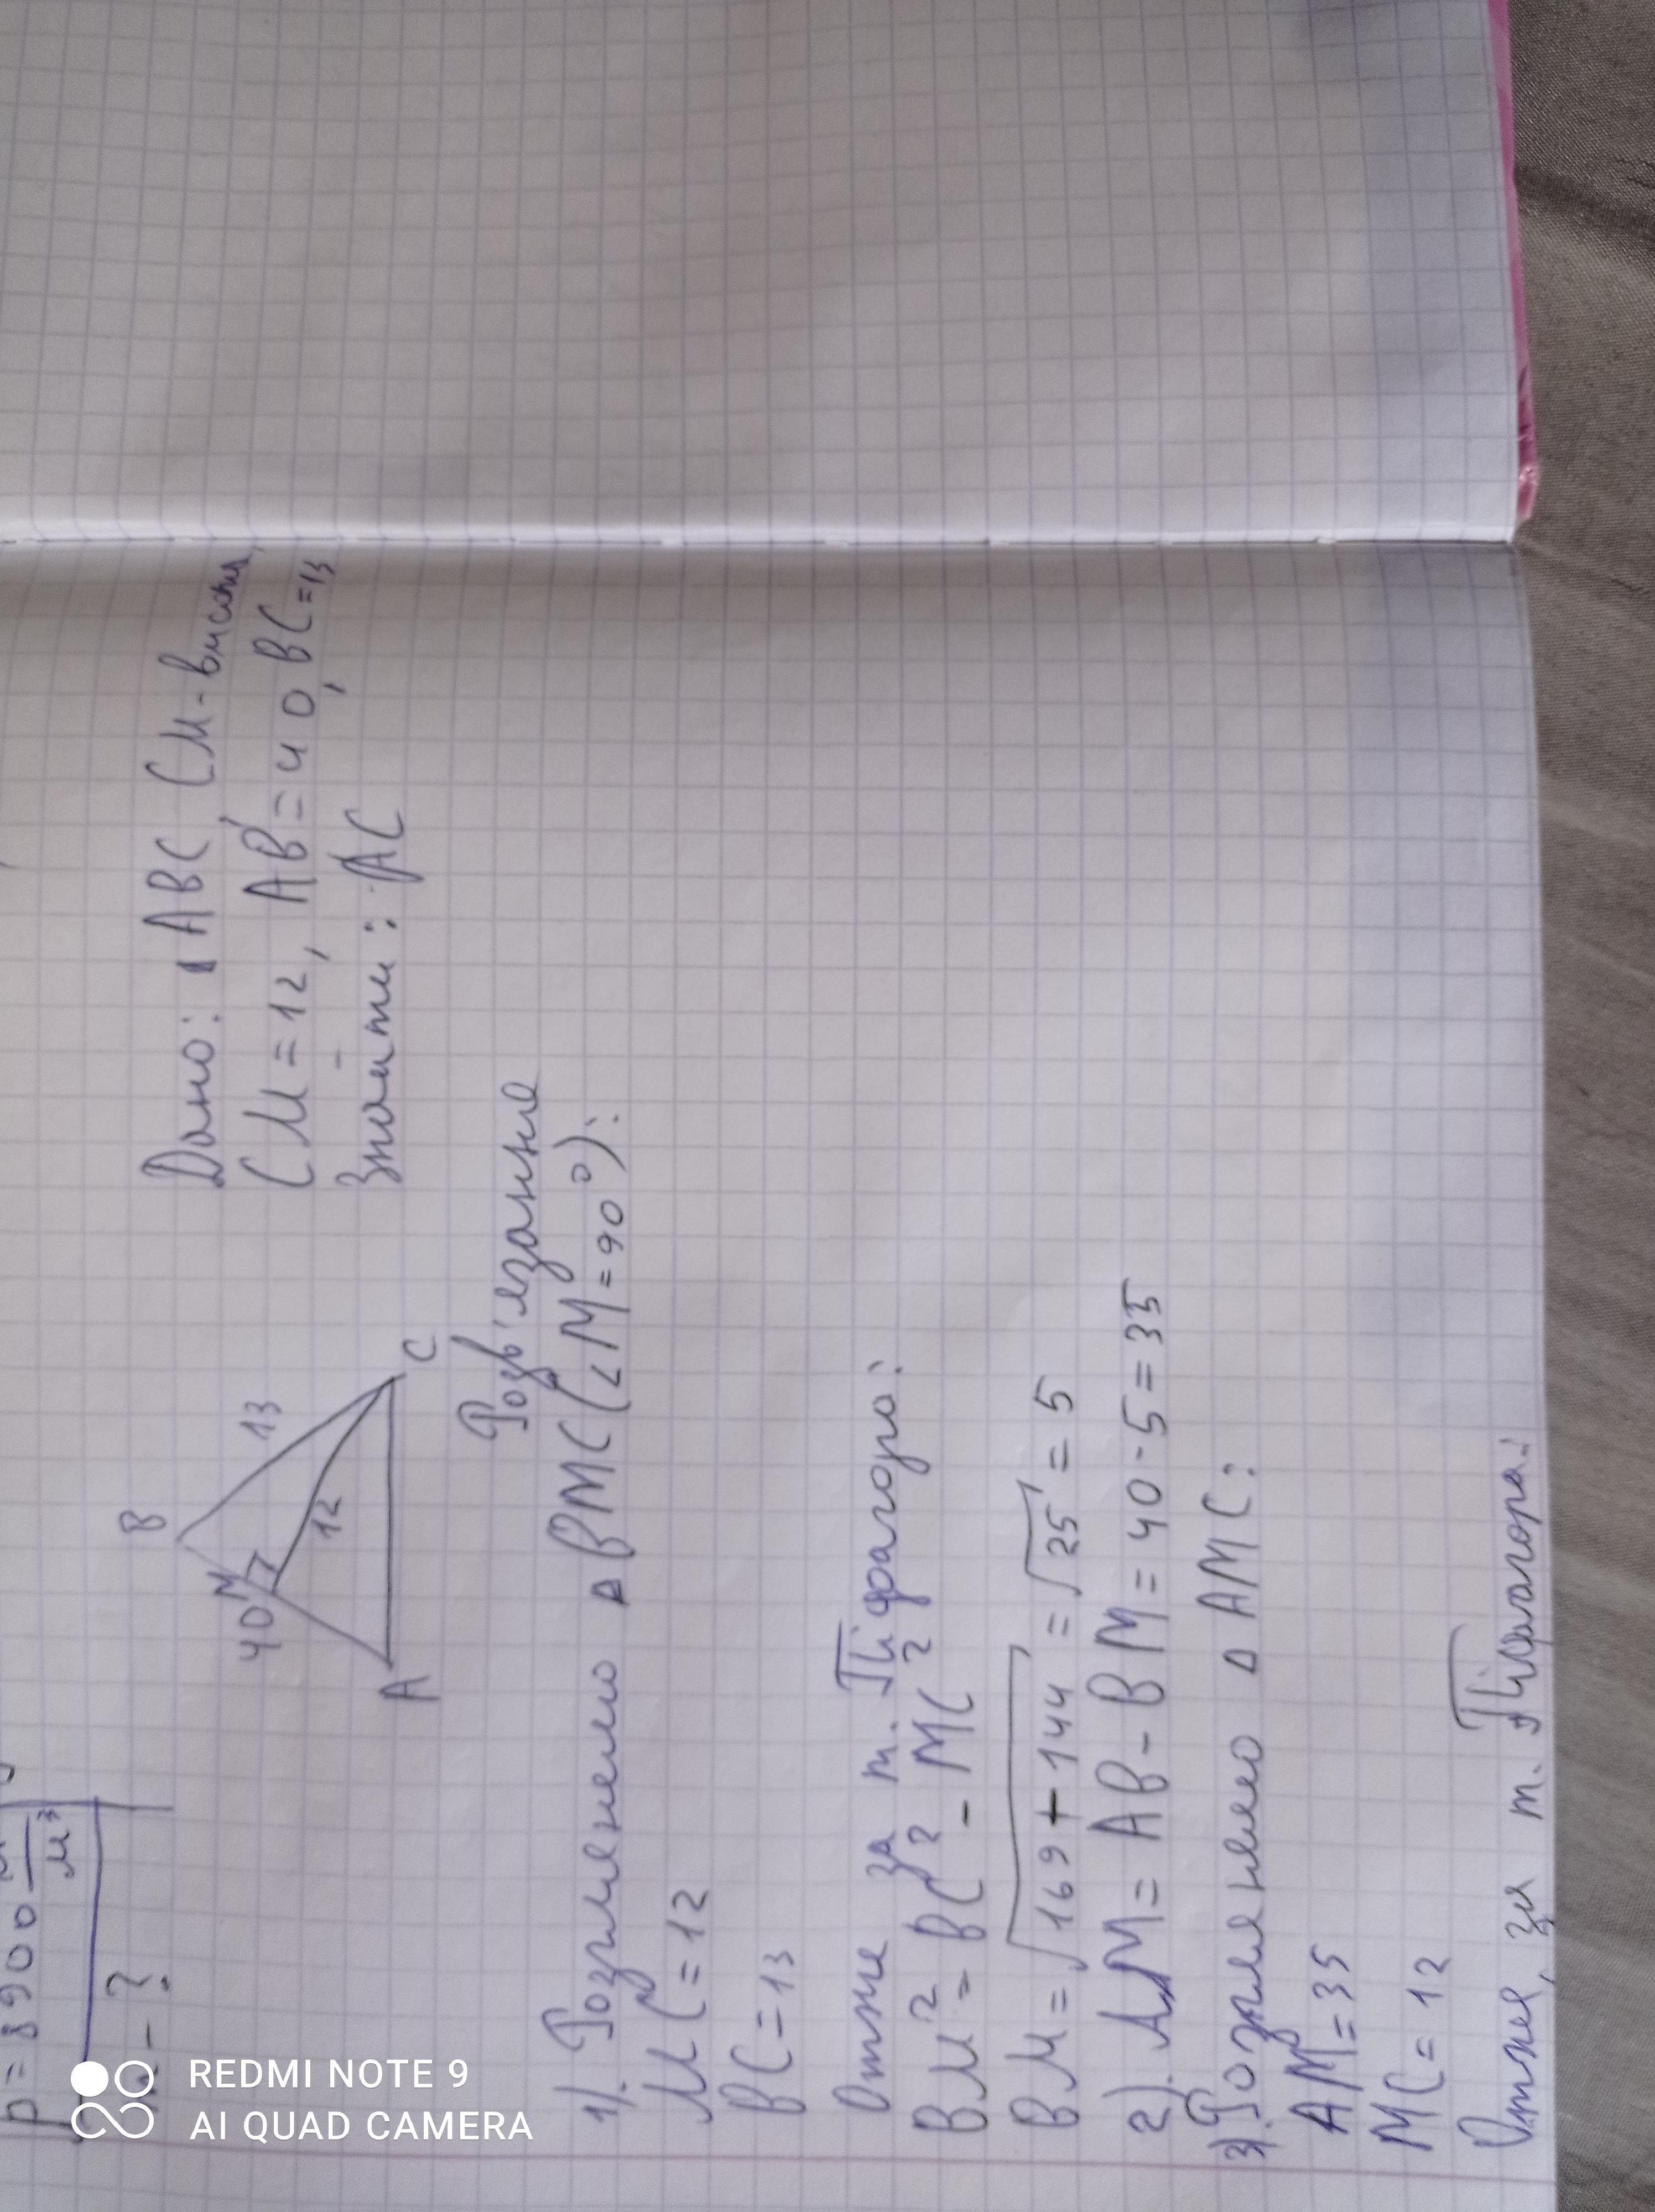 ρ = 8900
м³
- ?
B
M
40
13
12
A
C
Дано: ΔABC, CM - висота,
CM = 12, AB = 40, BC = 13
Знайти: AC
Розв'язання
1). Розглянемо ΔBMC (∠M = 90°):
MC = 12
BC = 13
Отже за т. Піфагора:
BM² = BC² - MC²
BM = √169 + 144 = √25 = 5
2). AM = AB - BM = 40 - 5 = 35
3). Розглянемо ΔAMC:
AM = 35
MC = 12
Отже, за т. Піфагора:
REDMI NOTE 9
AI QUAD CAMERA